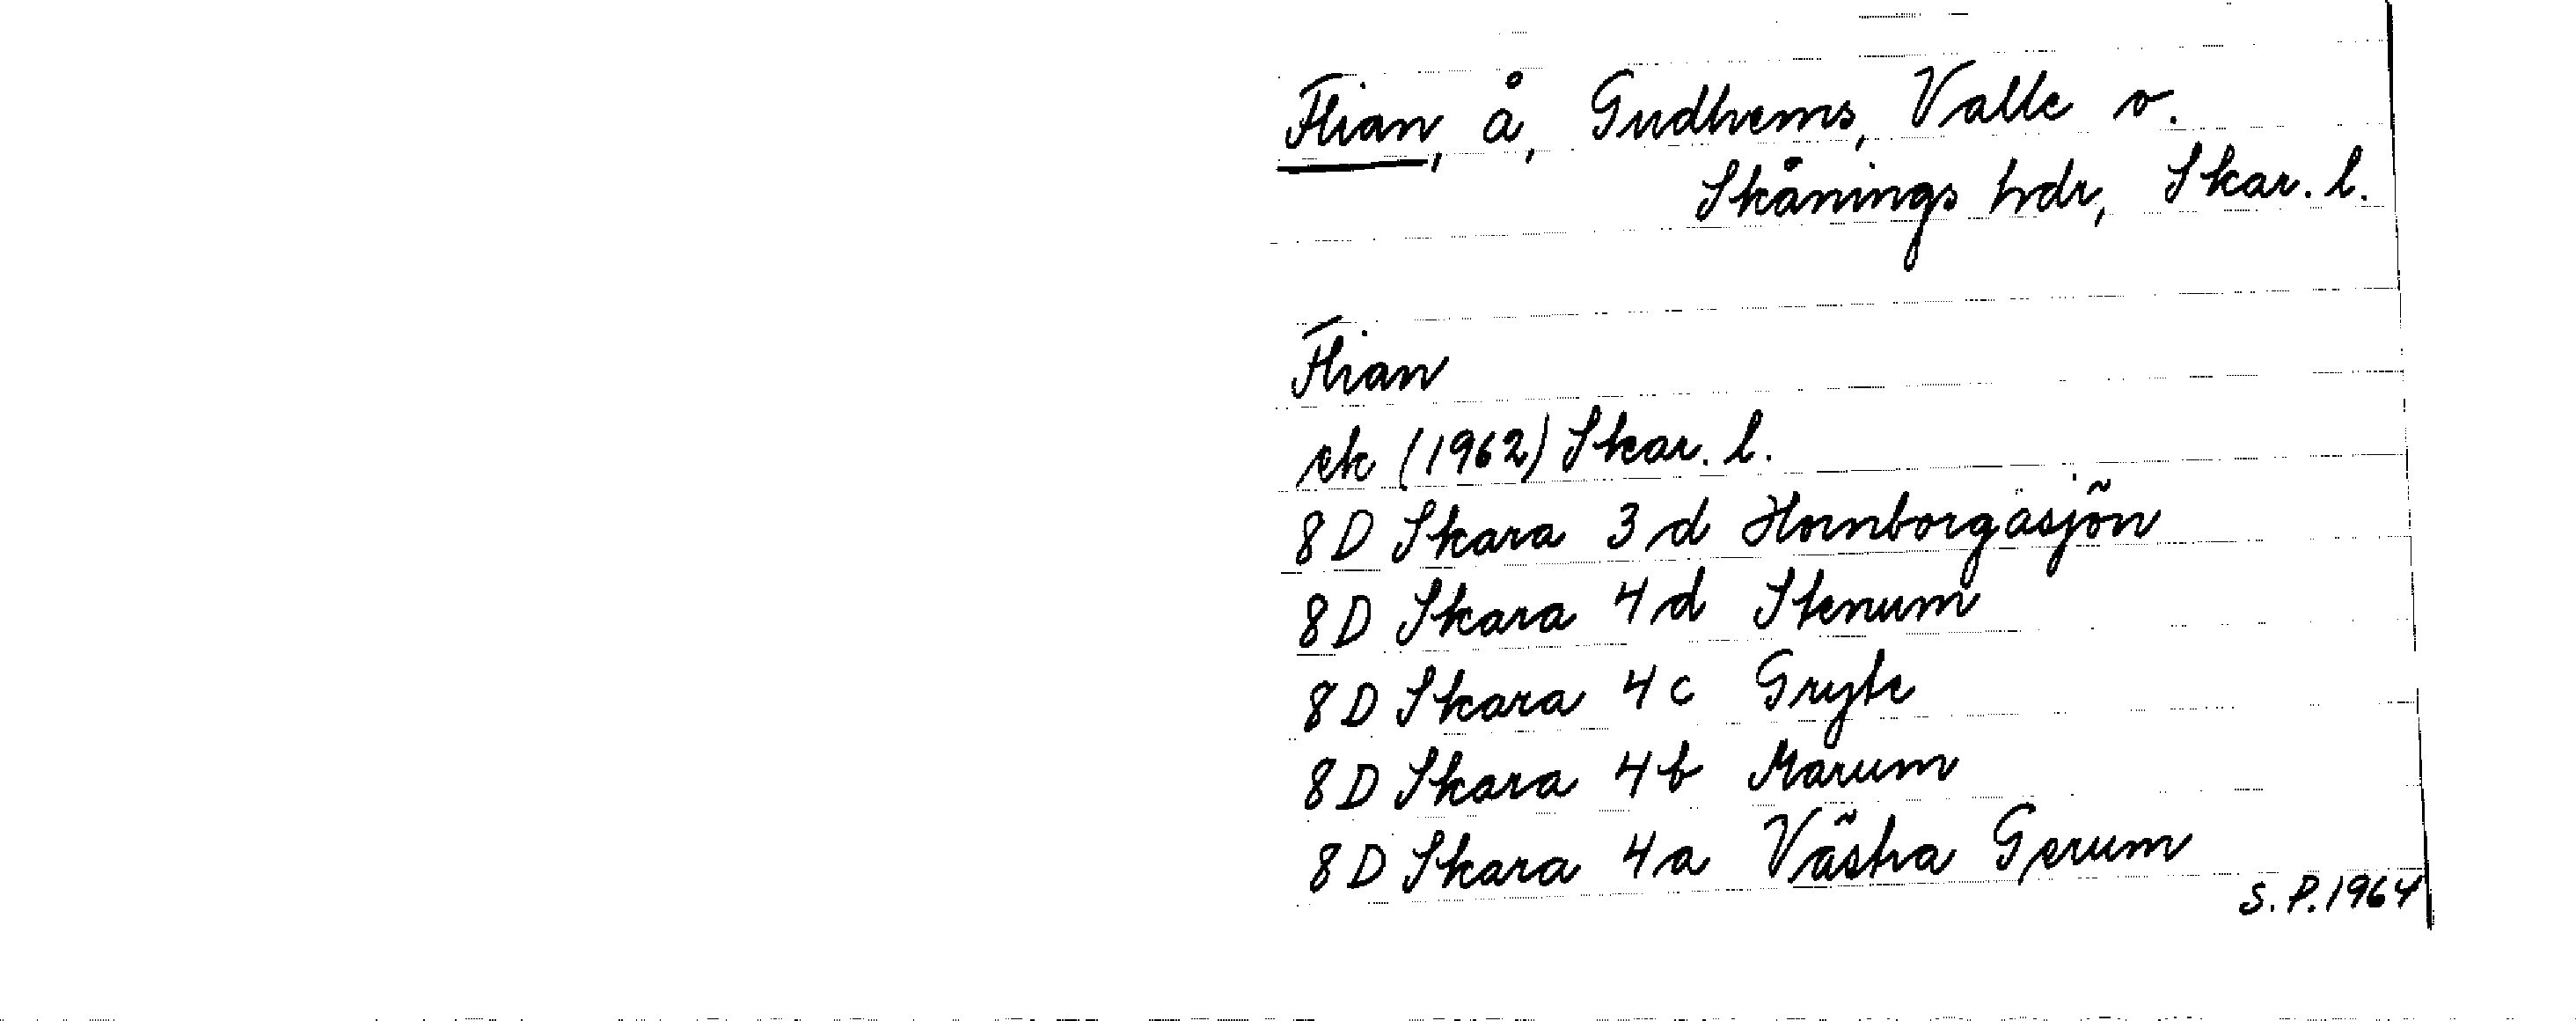 Flian, å, Gudhems, Valle o.
Skånings hdr, Skar. l.
Flian
ek (1962) Skar. l.
8 D Skara 3 d Hornborgasjön
8 D Skara 4 d Stenum
8 D Skara 4 c Gryte
8 D Skara 4 b Marum
8 D Skara 4 a Västra Gerum
S. P. 1964